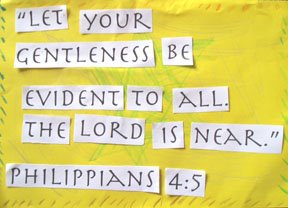 "LET YOUR
GENTLENESS BE
EVIDENT TO ALL.
THE LORD IS NEAR."
PHILIPPIANS 4:5